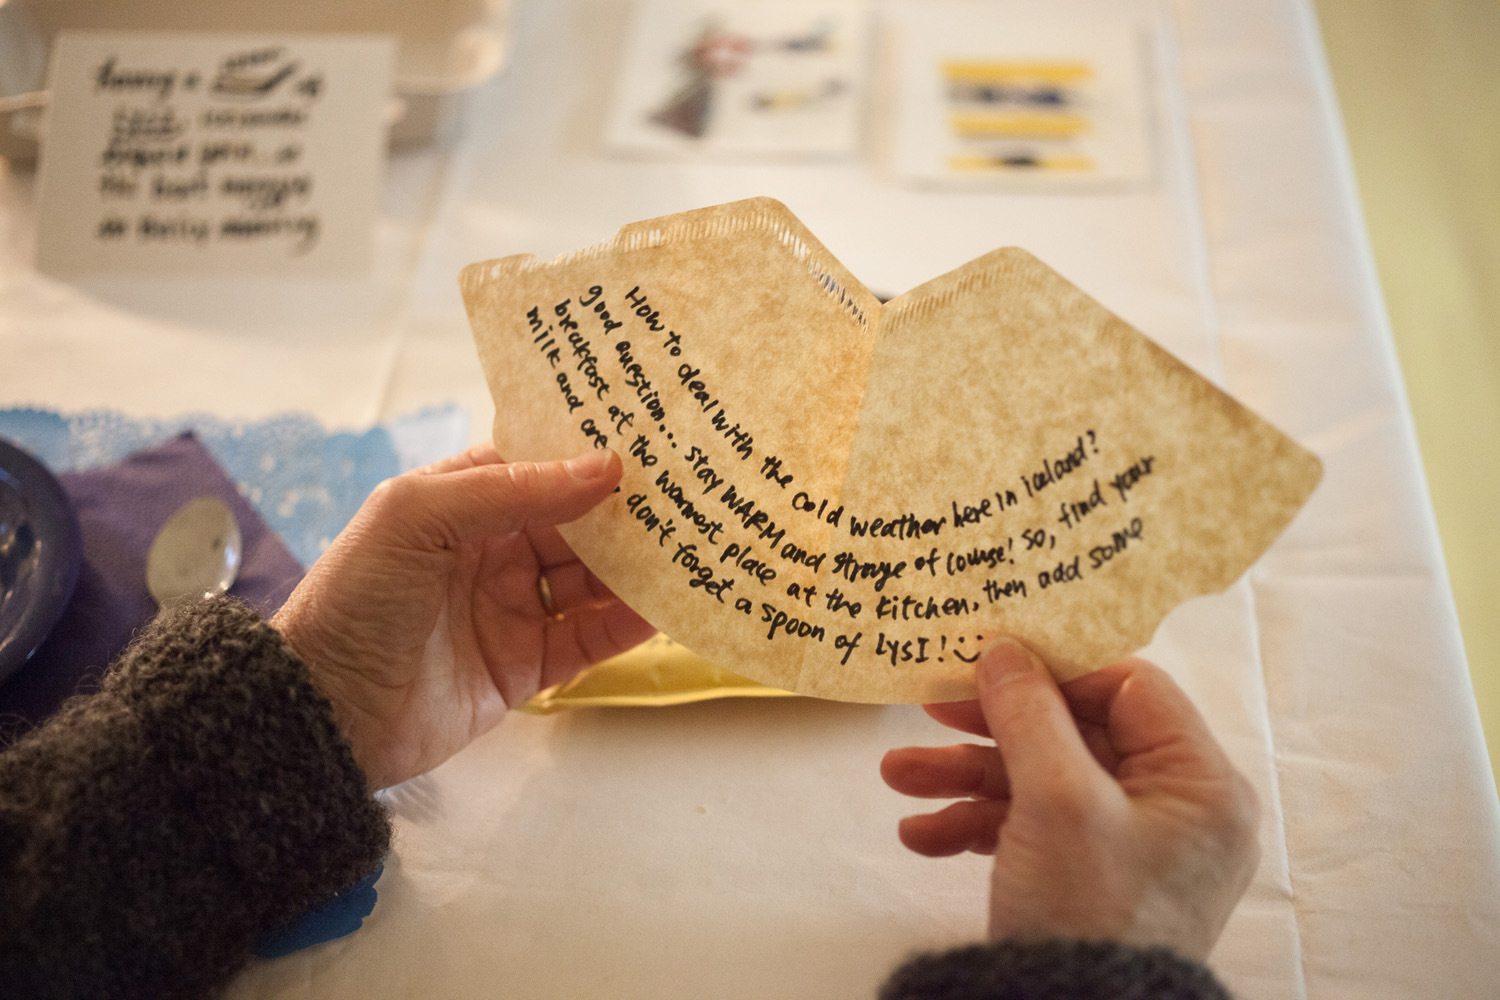 having a
the best
How to deal with the cold weather here in iceland?
good question... stay WARM and strange of course! so, find your
breakfast at the warmest place at the kitchen, then add some
milk and don't forget a spoon of LYSI!